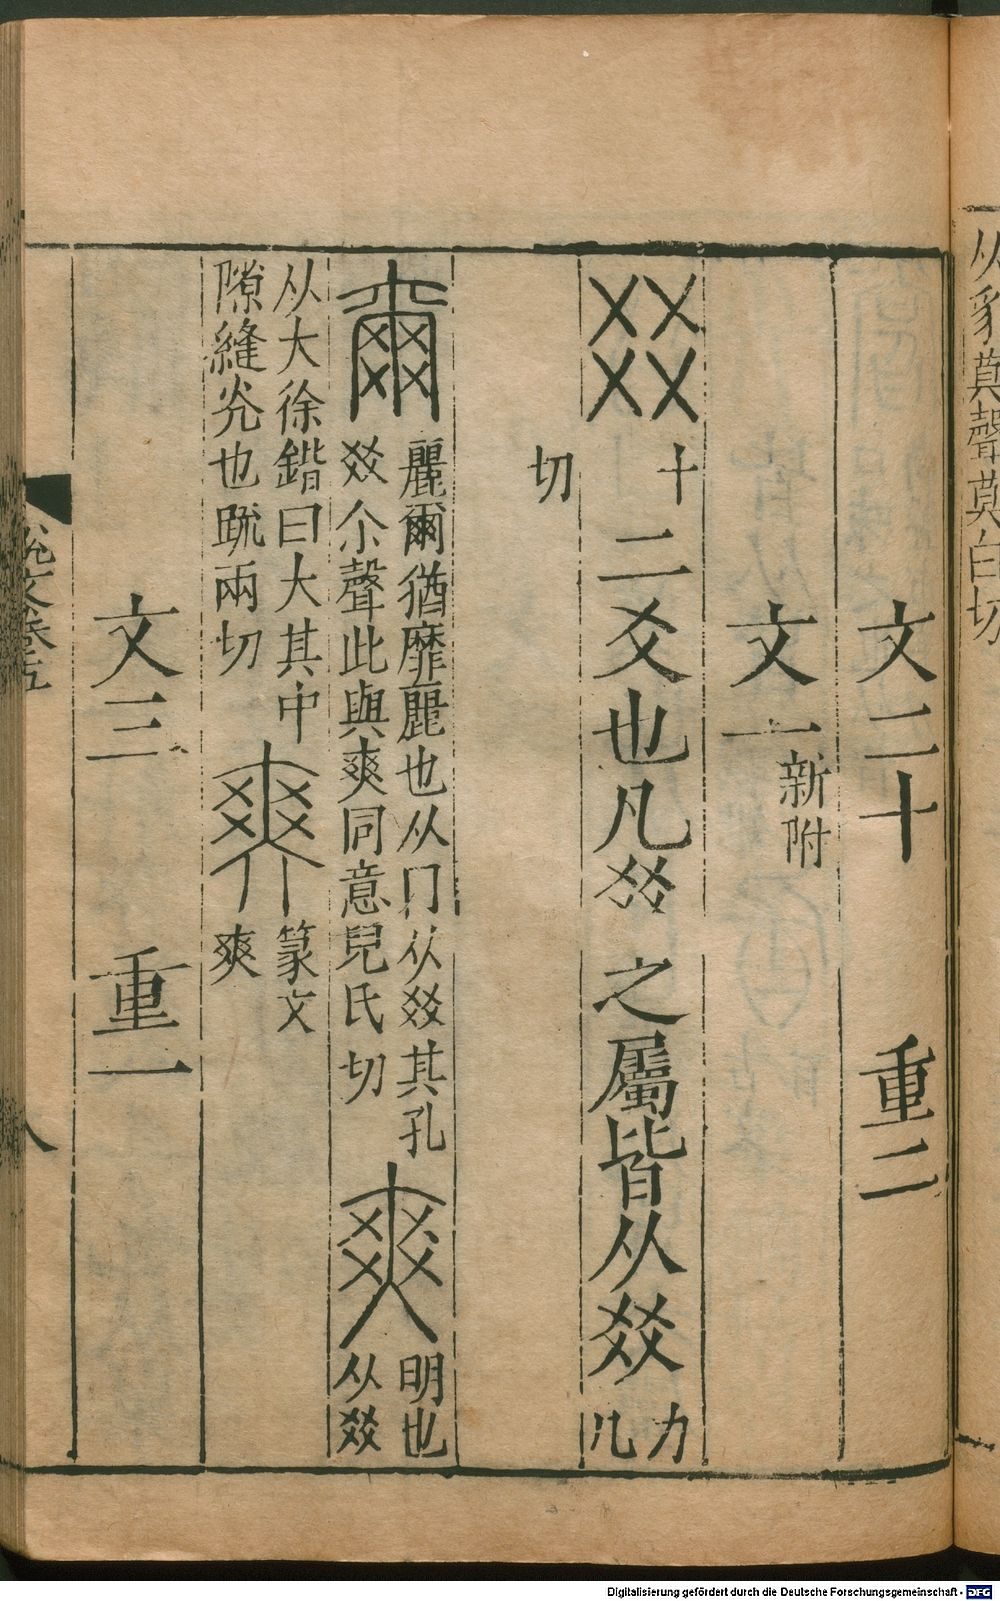 从豸莫聲莫白切
文二十 重二
文一 新附
㸚 十 二爻也凡㸚之屬皆从㸚 力几
切
爾 麗爾猶靡麗也从冂从㸚其孔
㸚尒聲此與爽同意兒氏切
爽 明也
从㸚
从大徐鍇曰大其中
隙縫光也疏兩切
爽 篆文
爽
文三 重一
Digitalisierung gefördert durch die Deutsche Forschungsgemeinschaft - DFG